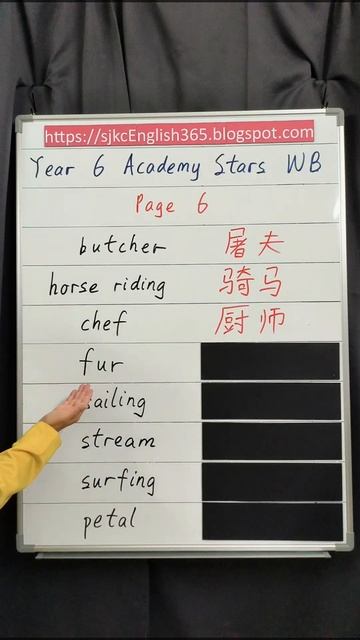 https://sjkcEnglish365.blogspot.com
Year 6 Academy Stars WB
Page 6
butcher 屠夫
horse riding 骑马
chef 厨师
fur
sailing
stream
surfing
petal